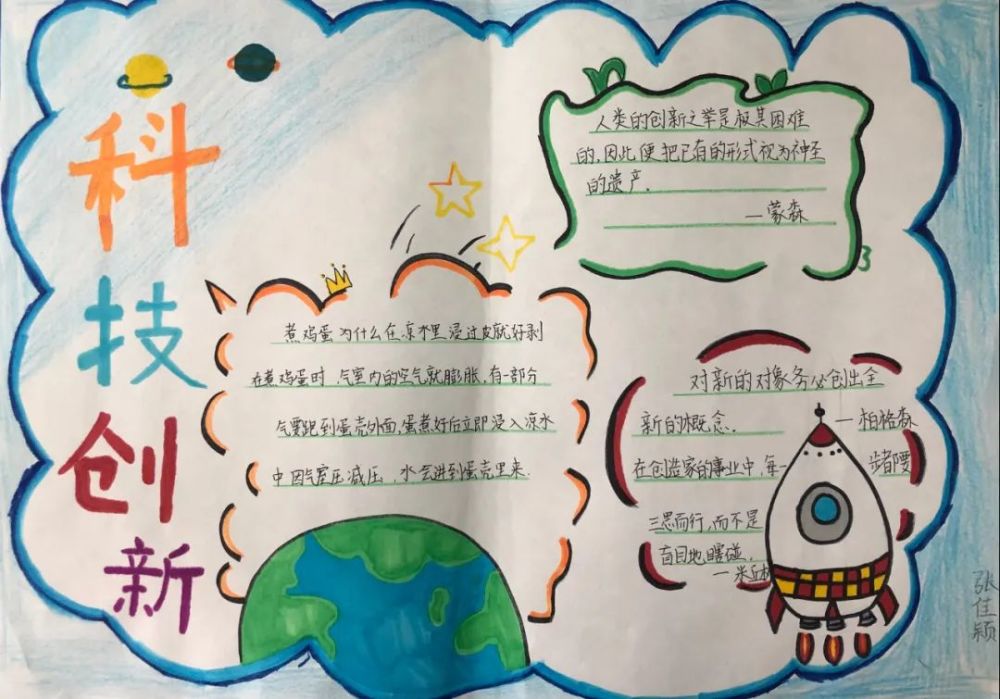 科
技
创
新
人类的创新之举是极其困难
的,因此便把已有的形式视为神圣
的遗产。
—蒙森
煮鸡蛋为什么在凉水里浸过皮就好剥
在煮鸡蛋时,气室内的空气就膨胀,有一部分
气要跑到蛋壳外面,蛋煮好后立即浸入凉水
中因气室压减压,水会进到蛋壳里来.
对新的对象务必创出全
新的概念。 —柏格森
在创造家的事业中,每一步都要
三思而行,而不是
盲目地瞎碰。
—米丘林
张佳颖